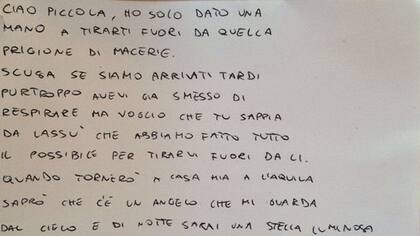 CIAO PICCOLA, HO SOLO DATO UNA
MANO A TIRARTI FUORI DA QUELLA
PRIGIONE DI MACERIE.
SCUSA SE SIAMO ARRIVATI TARDI
PURTROPPO AVEVI GIA SMESSO DI
RESPIRARE MA VOGLIO CHE TU SAPPIA
DA LASSU' CHE ABBIAMO FATTO TUTTO
IL POSSIBILE PER TIRARVI FUORI DA LI.
QUANDO TORNERO' A CASA MIA A L'AQUILA
SAPRO' CHE C'È UN ANGELO CHE MI GUARDA
DAL CIELO E DI NOTTE SARAI UNA STELLA LUMINOSA